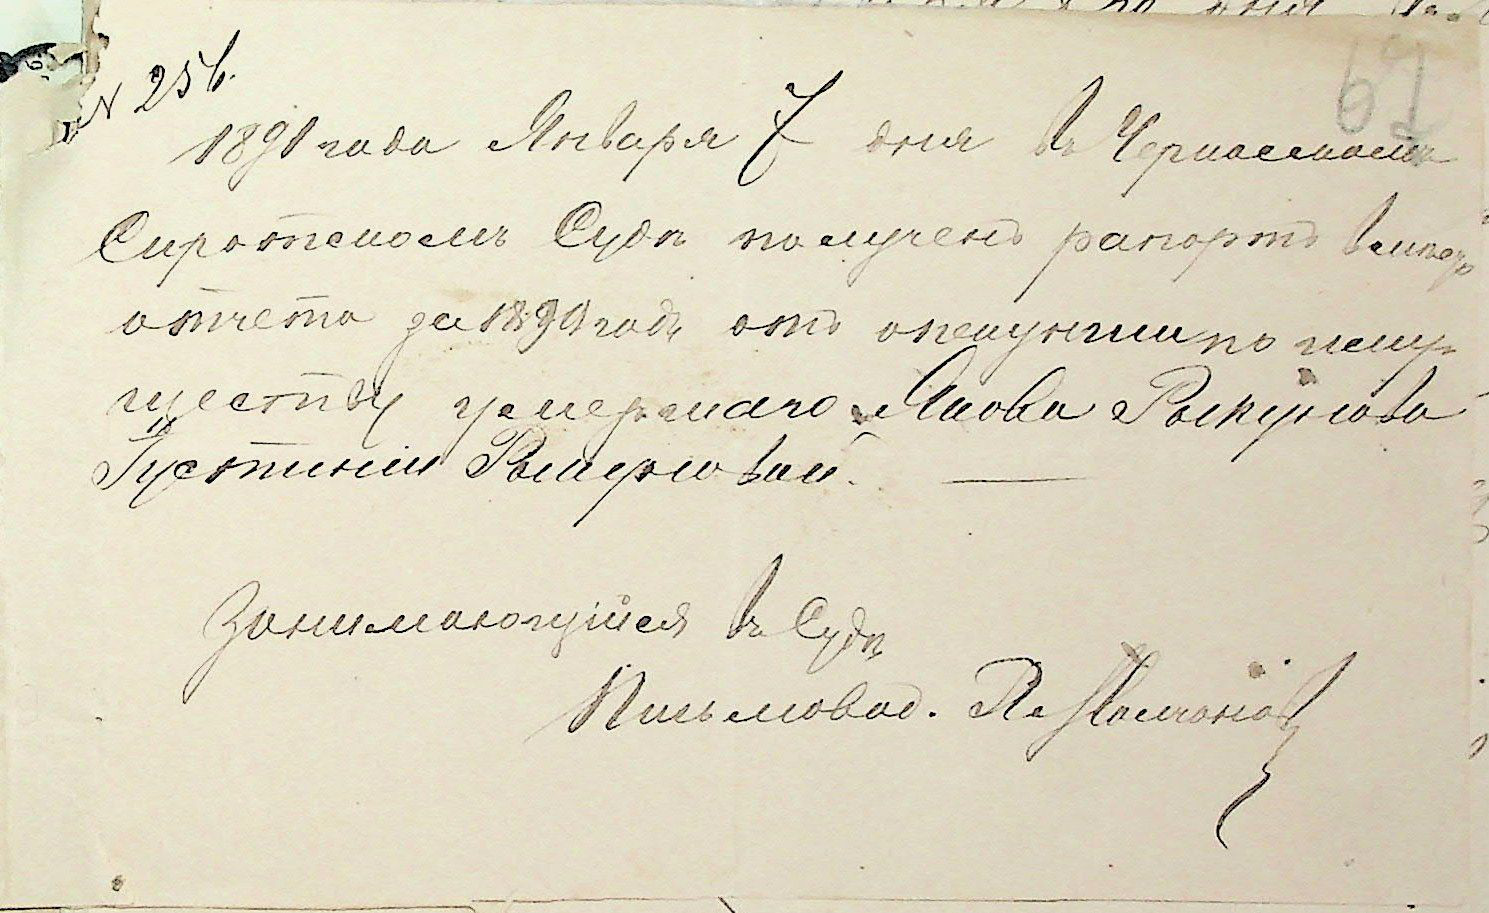 N 256.
62
1891 года Января 7 дня въ Черкасскомъ
Сиротскомъ Судѣ полученъ рапортъ вмѣсто
отчета за 1890 годъ отъ опекунши по иму-
ществу умершаго Якова
Густиніи
Занимающійся въ Судѣ
Письмовод. П. Молчановъ